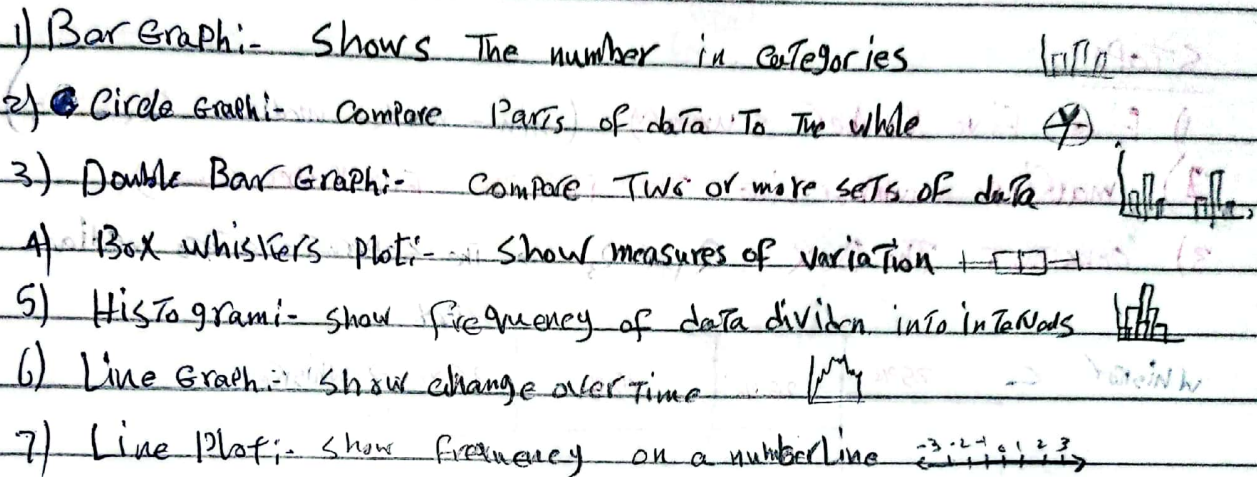 1) Bar Graph:- Shows The number in CaTegories
2) Circle Graph:- Compare ParTs of daTa To The whole
3) Double Bar Graph:- Compare Two or more seTs of daTa
4) Box whiskers Plot:- Show measures of variaTion
5) HisTogram:- Show frequency of daTa dividen inTo inTervals
6) Line Graph:- Show change over Time
7) Line Plot:- Show frequency on a number Line -3 -2 -1 0 1 2 3